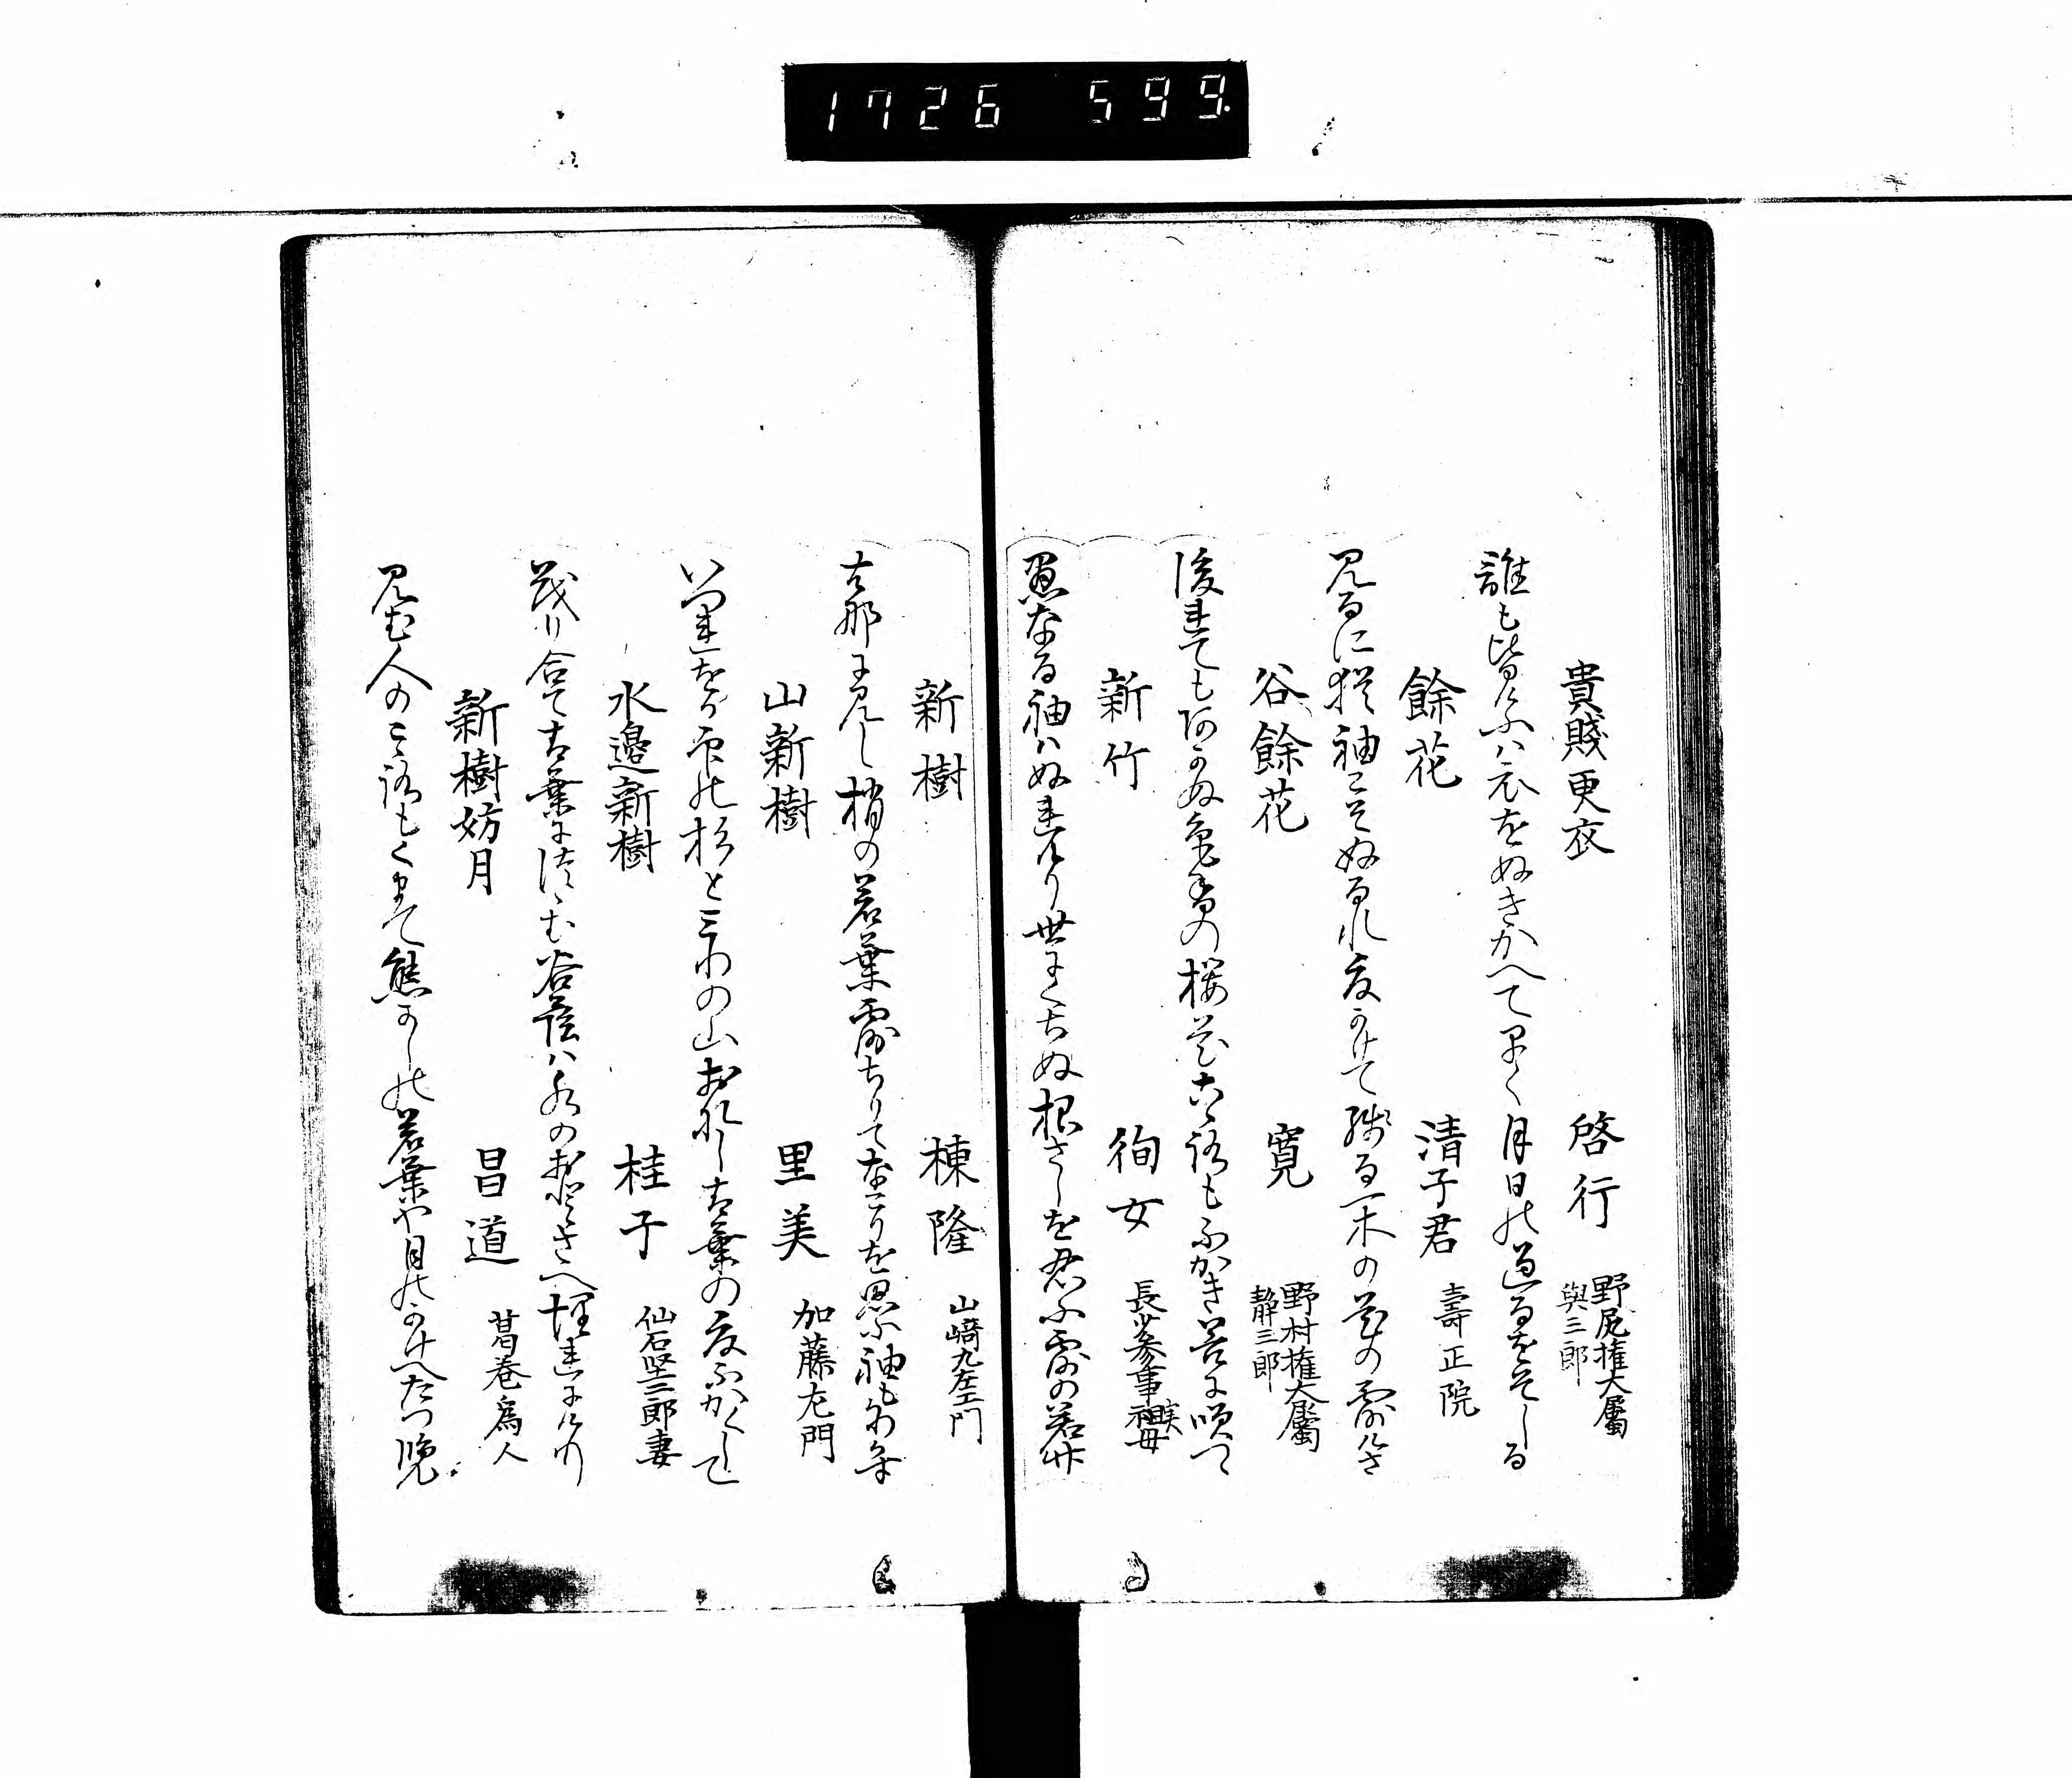 1726 599
貴賤更衣
啓行
野尻権大屬
與三郎
誰も皆けふハ衣をぬきかへて早く月日の過るをそしる
餘花
清子君
壽正院
見るに猶袖こそぬるれ夏かけて残る一木の花の露けさ
谷餘花
寛
野村権大屬
静三郎
後れても
の桜花こゝろもふかき谷に咲つゝ
新竹
徇女
長
参事
祖母
愚なる袖ハぬれけり世にくちぬ根さしを忍ふ露の若竹
新樹
棟隆
山﨑九左エ門
去年見し梢の若葉露ちりてなこりを思ふ袖も
山新樹
里美
加藤左門
いつれをか
の杉と三わの山おなし青葉の夏ふかくして
水邊新樹
桂子
仙石堅三郎妻
茂り合て青葉につゝむ谷陰ハ水のおとさへ埋れにけり
新樹妨月
昌道
葛巻為人
見む人のこゝろもくまて熊かしの若葉や月のかけへたつ覧